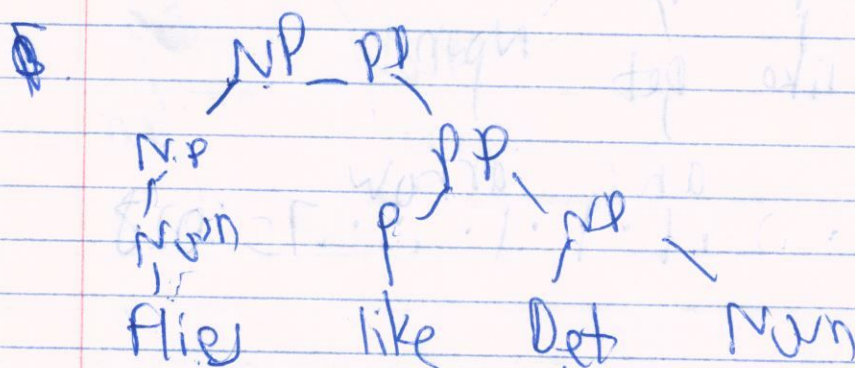 NP - PP
NP PP
Noun P NP
flies like Det Noun